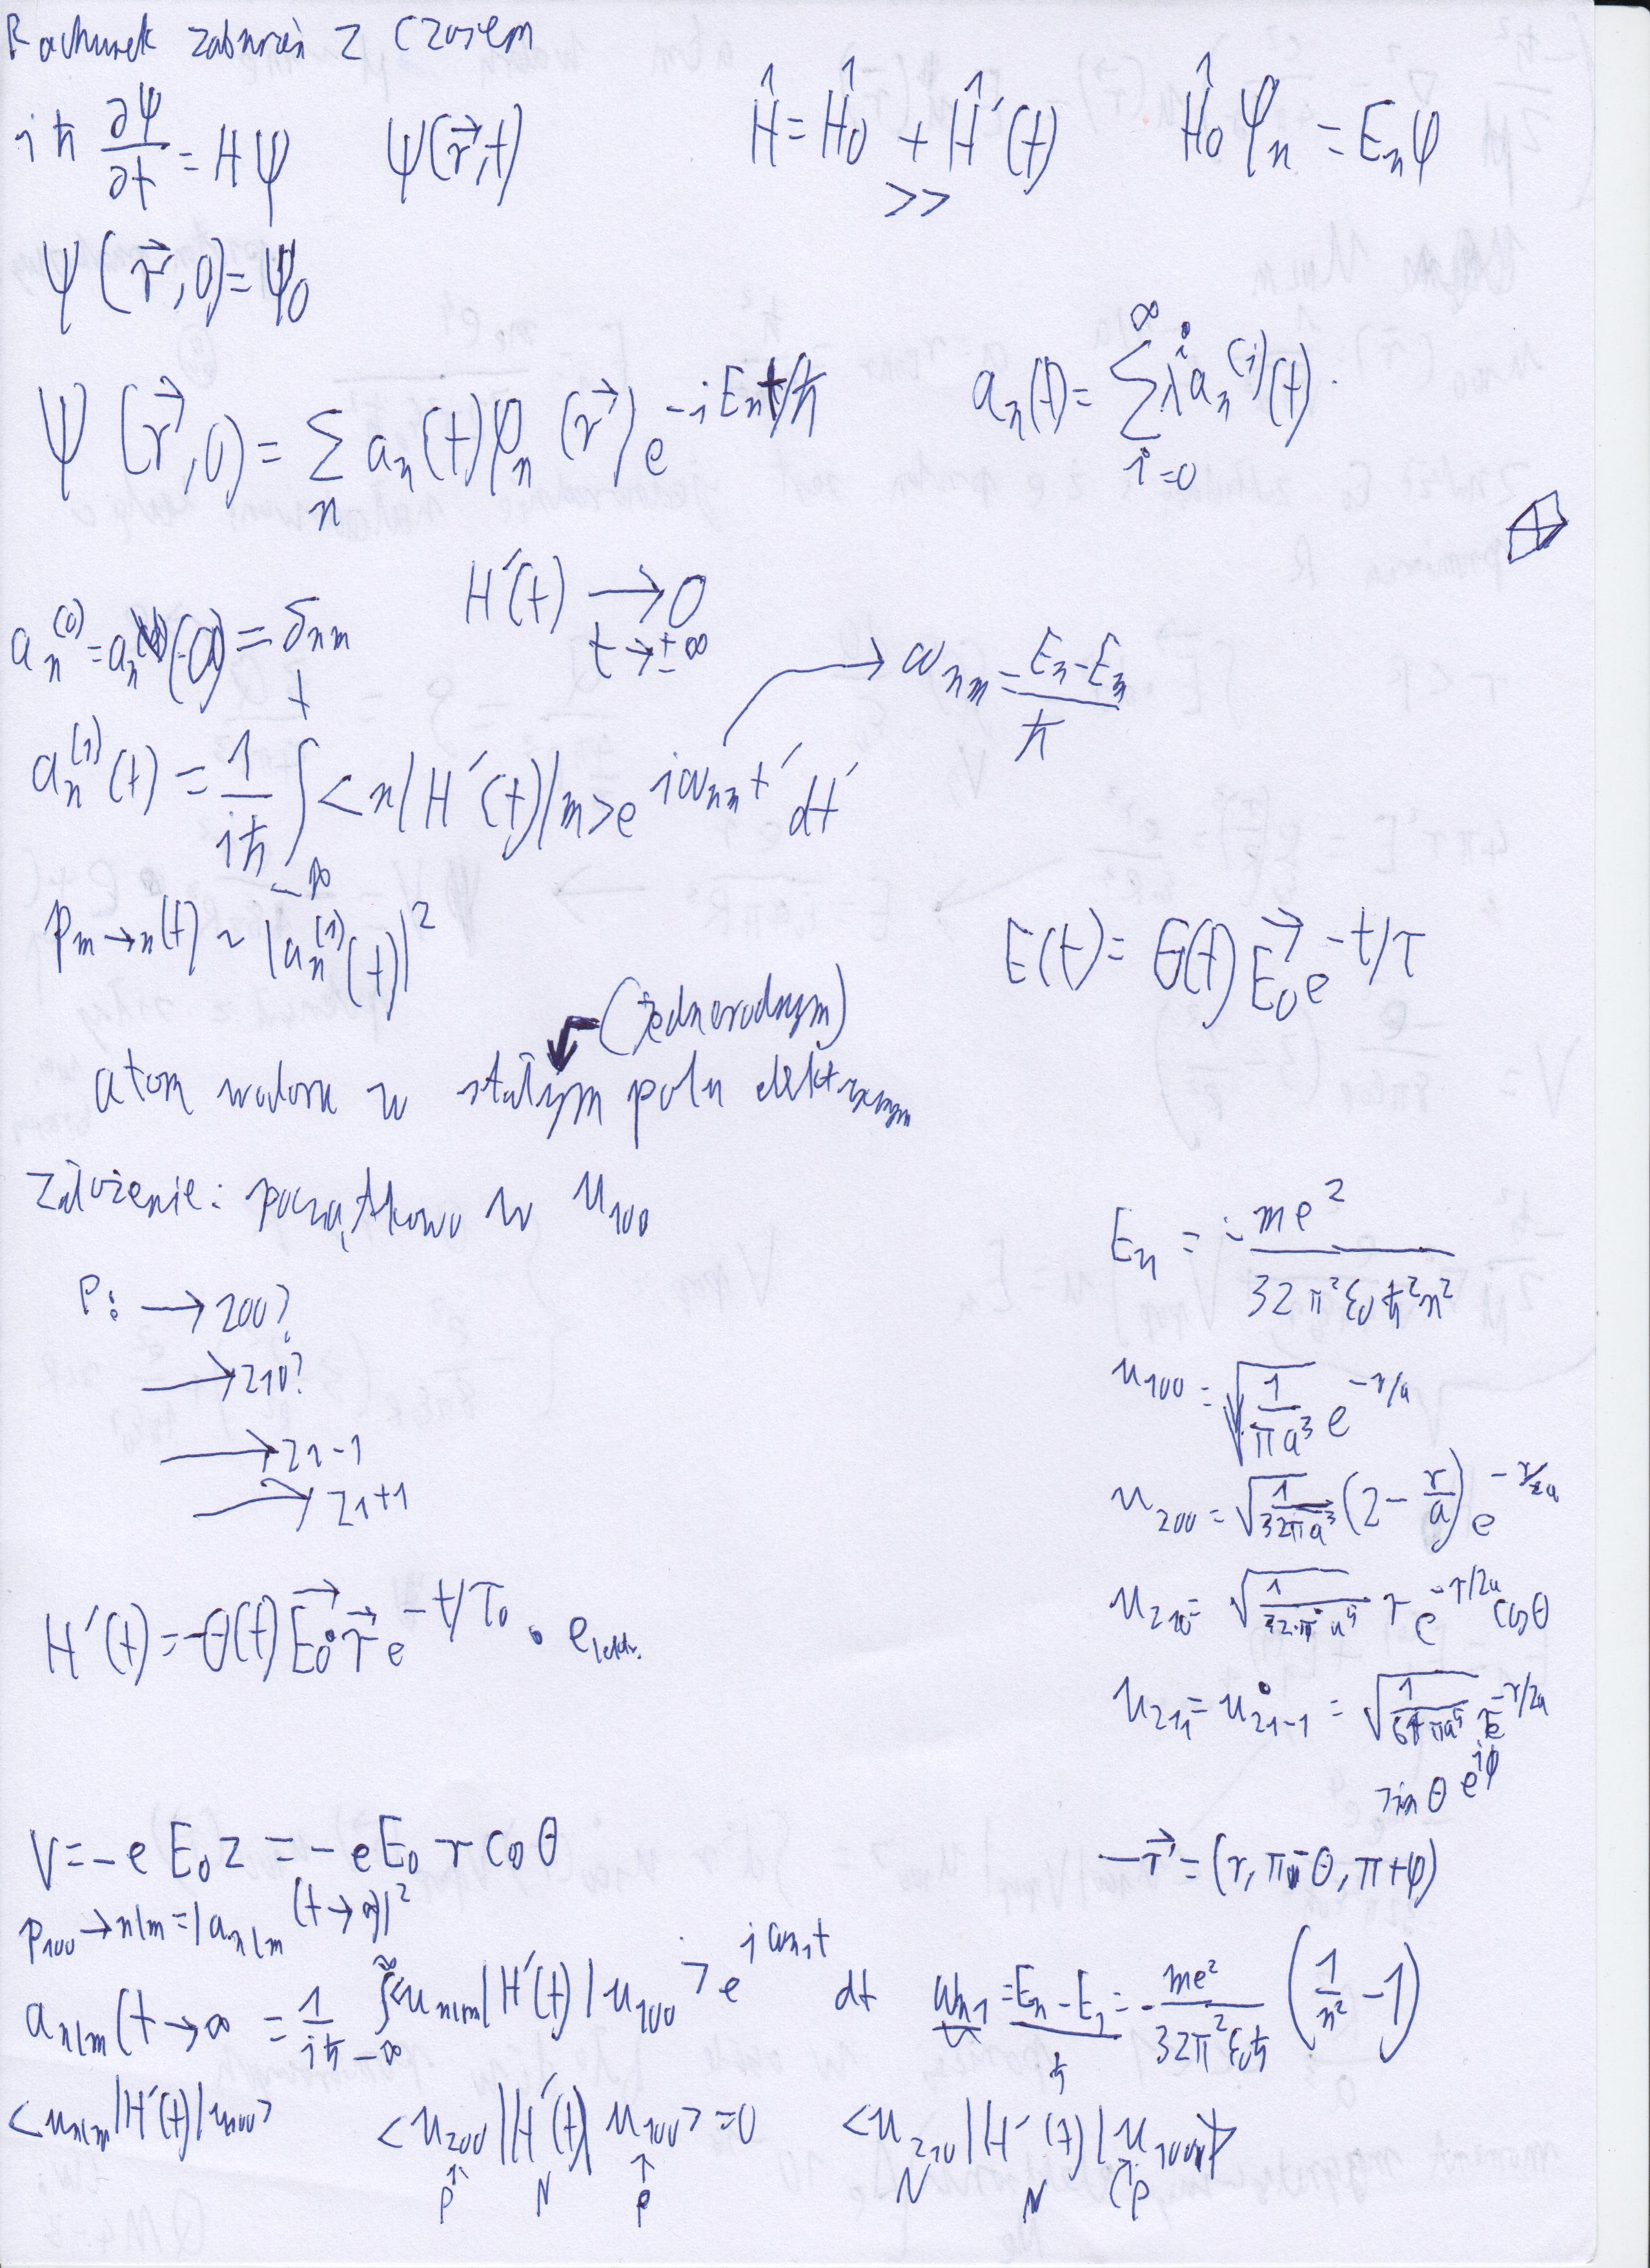 Rachunek zaburzeń z czasem
iħ ∂Ψ/∂t = HΨ    Ψ(r⃗,t)    Ĥ = Ĥ0 + Ĥ′(t)    Ĥ0 φn = En φ
>>
Ψ(r⃗,0) = Ψ0
Ψ(r⃗,0) = Σn an(t) φn(r⃗) e^(-iEnt/ħ)    an(t) = Σ(i=0)^∞ λ^i an^(i)(t).
H′(t) → 0
t→±∞
an^(0) = an(-∞) = δnm
ωnm = (En-Em)/ħ
an^(1)(t) = 1/(iħ) ∫(-∞)^t <n|H′(t)|m> e^(iωnm t′) dt′
Pm→n(t) ~ |an^(1)(t)|²
E(t) = Θ(t) E⃗0 e^(-t/τ)
(jednorodnym)
atom wodoru w stałym polu elektrycznym
Założenie: początkowo w u100
En = - me²/(32π²ε0ħ²n²)
P: → 200?
→ 210?
→ 21-1
→ 21+1
u100 = √(1/(πa³)) e^(-r/a)
u200 = √(1/(32πa³)) (2 - r/a) e^(-r/2a)
u210 = √(1/(32πa⁵)) r e^(-r/2a) cosθ
H′(t) = -Θ(t) E⃗0·r⃗ e^(-t/τ0) · e elektr.
u211 = u21-1 = √(1/(64πa⁵)) r e^(-r/2a)
sinθ e^(iφ)
V = -e E0 z = -e E0 r cosθ
-r⃗ = (r, π-θ, π+φ)
P100→nlm = |anlm (t→∞)|²
anlm(t→∞ = 1/(iħ) ∫(-∞)^∞ <unlm|H′(t)|u100> e^(iωn1t) dt    ωn1 = (En - E1)/ħ = - me²/(32π²ε0ħ) (1/n² - 1)
<unlm|H′(t)|u100>    <u200|H′(t)|u100> = 0    <u210|H′(t)|u100>
P N P    N N P